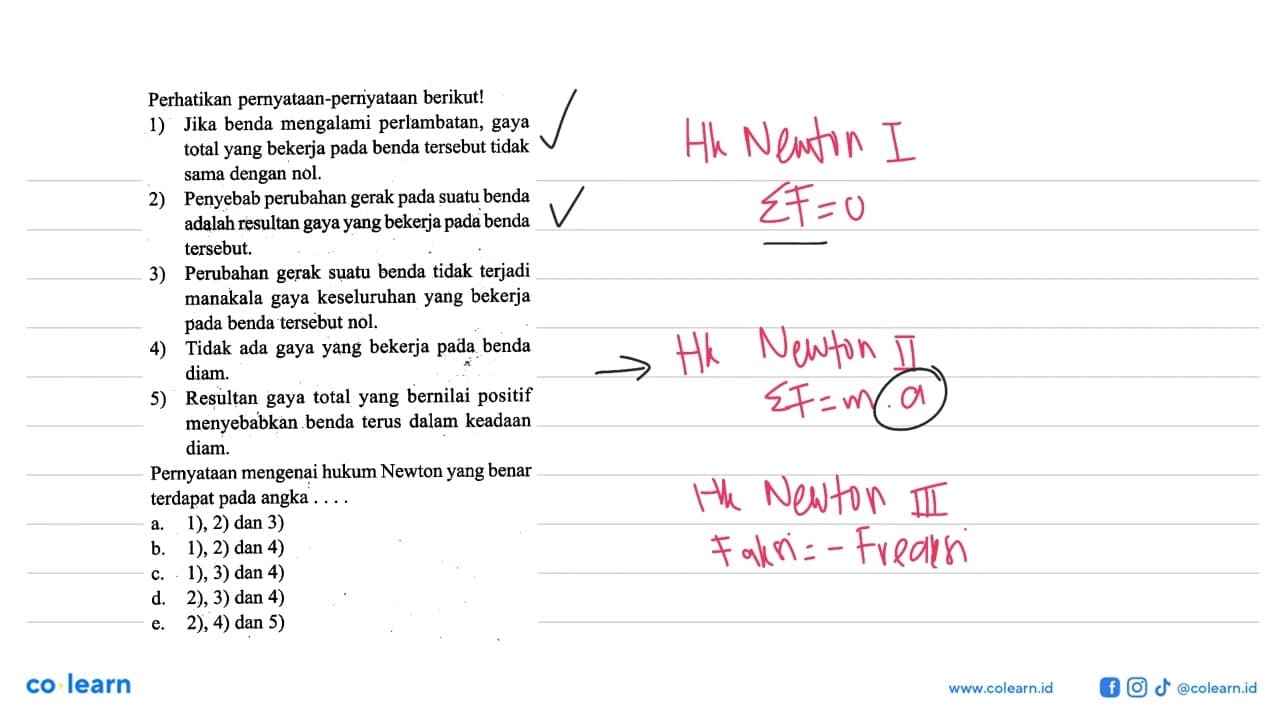 Perhatikan pernyataan-pernyataan berikut!
1) Jika benda mengalami perlambatan, gaya
total yang bekerja pada benda tersebut tidak
sama dengan nol.
2) Penyebab perubahan gerak pada suatu benda
adalah resultan gaya yang bekerja pada benda
tersebut.
3) Perubahan gerak suatu benda tidak terjadi
manakala gaya keseluruhan yang bekerja
pada benda tersebut nol.
4) Tidak ada gaya yang bekerja pada benda
diam.
5) Resultan gaya total yang bernilai positif
menyebabkan benda terus dalam keadaan
diam.
Pernyataan mengenai hukum Newton yang benar
terdapat pada angka . . . .
a. 1), 2) dan 3)
b. 1), 2) dan 4)
c. 1), 3) dan 4)
d. 2), 3) dan 4)
e. 2), 4) dan 5)
Hk Newton I
ΣF = 0
Hk Newton II
ΣF = m . a
Hk Newton III
F aksi = - F reaksi
co learn
www.colearn.id
@colearn.id